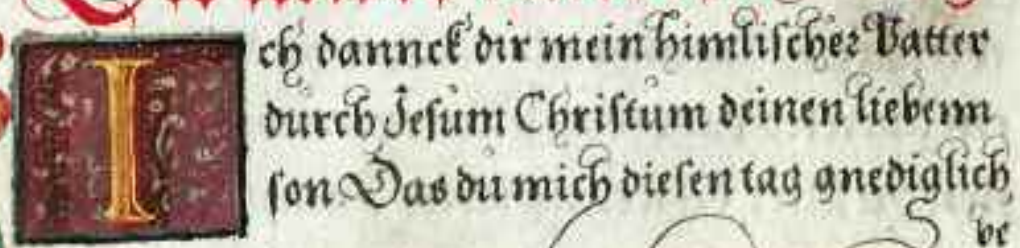 Ich dannck dir mein himlischer Vatter
durch Jesum Christum deinen liebenn
son Das du mich diesen tag gnediglich
be